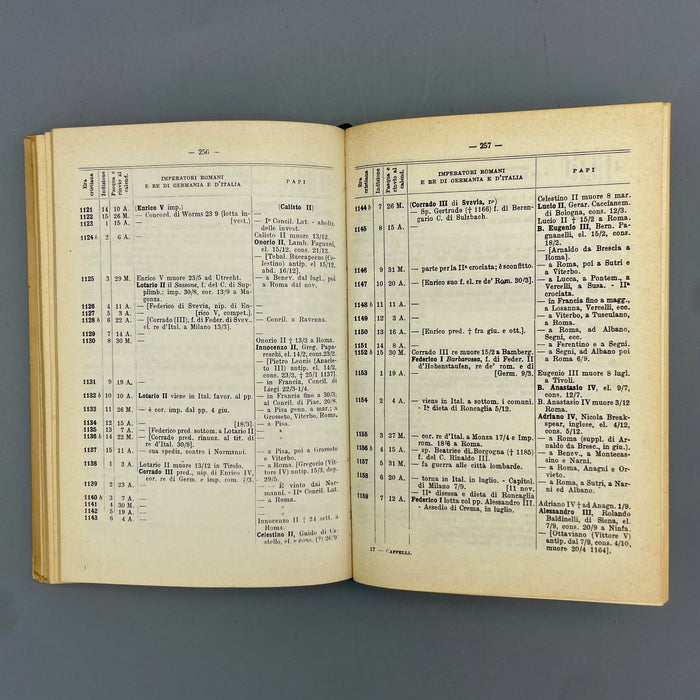 — 256 —
Era cristiana
Indizione
Pasqua e rinvio al calend.
IMPERATORI ROMANI
E RE DI GERMANIA E D'ITALIA
PAPI
1121 14 10 A. (Enrico V imp.) (Calisto II)
1122 15 26 M. — Concord. di Worms 23 9 (lotta in- —
1123 1 15 A. — [vest.] — Iº Concil. Lat. - aboliz.
delle invest.
Calisto II muore 13/12.
1124 b 2 6 A. — Onorio II, Lamb. Fagnani,
el. 15/12, cons. 21/12.
— [Tebal. Buccapecus (Ce-
lestino) antip. el. 15/12,
abd. 16/12].
1125 3 29 M. Enrico V muore 23/5 ad Utrecht. — a Benev. dal lugl., poi a
Lotario II il Sassone, f. del C. di Sup- Roma dal nov.
plimb.; imp. 30/8, cor. 13/9 a Ma-
gonza.
1126 4 11 A. — [Federico di Svevia, nip. di En- —
1127 5 3 A. — [rico V, compet.]. —
1128 b 6 22 A. — [Corrado (III), f. di Feder. di Svev., — Concil. a Ravenna.
el. re d'Ital. a Milano 13/3].
1129 7 14 A. —
1130 8 30 M. — Onorio II † 13/2 a Roma.
Innocenzo II, Greg. Papa-
reschi, el. 14/2, cons. 23/2.
— [Pietro Leonis (Anacle-
to III) antip. el. 14/2,
cons. 23/2, † 25/1 1137].
1131 9 19 A. — — in Francia, Concil. di
Liegi 22/3-1/4.
1132 b 10 10 A. Lotario II viene in Ital. favor. al pp — in Francia fino a 30/3;
al Concil. di Piac. 20/8.
1133 11 26 M. — è cor. imp. dal pp. 4 giu. — a Pisa genn. a mar.; a
Grosseto, Viterbo, Roma.
1134 12 15 A. — [18/3]. — a Pisa.
1135 13 7 A. — [Federico pred. sottom. a Lotario II — "
1136 b 14 22 M. — [Corrado pred. rinunz. al tit. di — "
re d'Ital. 30/9].
1137 15 11 A. — sua spediz. contro i Normanni. — a Pisa, poi a Grosseto
e Viterbo.
1138 1 3 A. Lotario II muore 13/12 in Tirolo. — a Roma. [Gregorio (Vit-
Corrado III pred., nip. di Enrico IV, tore IV) antip. 15/3, dep.
cor. re di Germ. e imp. rom. 7/3. 29/5.
1139 2 23 A. — — È vinto dai Nor-
manni. - IIº Concil. Lat.
1140 b 3 7 A. — — a Roma.
1141 4 30 M. — — "
1142 5 19 A. — — "
1143 6 4 A. — Innocenzo II † 24 sett. a
Roma.
Celestino II, Guido di Ca-
stello, el. e cons. (?) 26/9
— 257 —
Era cristiana
Indizione
Pasqua e rinvio al calend.
IMPERATORI ROMANI
E RE DI GERMANIA E D'ITALIA
PAPI
Celestino II muore 8 mar.
1144 b 7 26 M. (Corrado III di Svevia, re) Lucio II, Gerar. Caccianem.
— Sp. Gertrude († 1166) f. di Beren- di Bologna, cons. 12/3.
gario C. di Sulzbach. Lucio II † 15/2 a Roma.
1145 8 15 A. — B. Eugenio III, Bern. Pa-
gnanelli, el. 15/2, cons.
18/2.
— [Arnaldo da Brescia a
Roma].
1146 9 31 M. — parte per la IIª crociata; è sconfitto. — a Roma, poi a Sutri e
a Viterbo.
1147 10 20 A. — [Enrico suo f. el. re de' Rom. 30/3]. — a Lucca, a Pontem., a
Vercelli, a Susa. - IIª
crociata.
1148 b 11 11 A. — — in Francia fino a magg.,
a Losanna, Vercelli, ecc.
1149 12 3 A. — — a Viterbo, a Tusculano,
a Roma.
1150 13 16 A. — [Enrico pred. † fra giu. e ott.]. — a Roma, ad Albano,
Segni, ecc.
1151 14 8 A. — — a Ferentino e a Segni.
1152 b 15 30 M. Corrado III re muore 15/2 a Bamberg. — a Segni, ad Albano poi
Federico I Barbarossa, f. di Feder. II a Roma 6/9.
d'Hohenstaufen, re de' rom. e di
1153 1 19 A. — [Germ. 9/3. Eugenio III muore 8 lugl.
a Tivoli.
B. Anastasio IV, el. 9/7,
cons. 12/7.
1154 2 4 A. — viene in Ital. a sottom. i comuni. B. Anastasio IV muore 3/12
- Iª dieta di Roncaglia 5/12. Roma.
Adriano IV, Nicola Break-
spear, inglese, el. 4/12,
cons. 5/12.
1155 3 27 M. — cor. re d'Ital. a Monza 17/4 e Imp. — a Roma (suppl. di Ar-
rom. 18/6 a Roma. naldo da Brescia, in giu.).
1156 b 4 15 A. — sp. Beatrice di Borgogna († 1185) — a Benev., a Montecas-
f. del C. Rinaldo III. sino e Narni.
1157 5 31 M. — fa guerra alle città lombarde. — a Roma, Anagni e Or-
vieto.
1158 6 20 A. — torna in Ital. in luglio. - Capitol. — a Roma, a Sutri, a Nar-
di Milano 7/9. [11 nov. ni ed Albano.
— IIª discesa e dieta di Roncaglia
1159 7 12 A. Federico I lotta col pp. Alessandro III. Adriano IV † ad Anagn. 1/9.
- Assedio di Crema, in luglio. Alessandro III, Rolando
Baldinelli, di Siena, el.
7/9, cons. 20/9 a Ninfa.
— [Ottaviano (Vittore V)
antip. dal 7/9, cons. 4/10,
muore 20/4 1164].
17 — CAPPELLI.